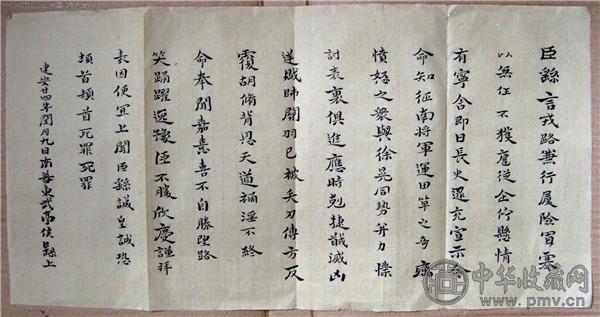 臣繇言戎路兼行履險冒寒
以無任不獲扈從企佇懸情
有寧舍即日長史逮充宣示令
命知征南將軍運田單之奇厲
憤怒之眾與徐晃同勢并力撲
討表裏俱進應時剋捷馘滅凶
逆賊帥關羽已被矢刃傅方反
覆胡脩背恩天道禍淫不終
命奉聞嘉憙喜不自勝望路
笑踊躍逸豫臣不勝欣慶謹拜
表因便宜上聞臣繇誠皇誠恐
頓首頓首死罪死罪
建安廿四年閏月九日南蕃東武亭侯臣繇上
中华收藏网
www.pmv.cn